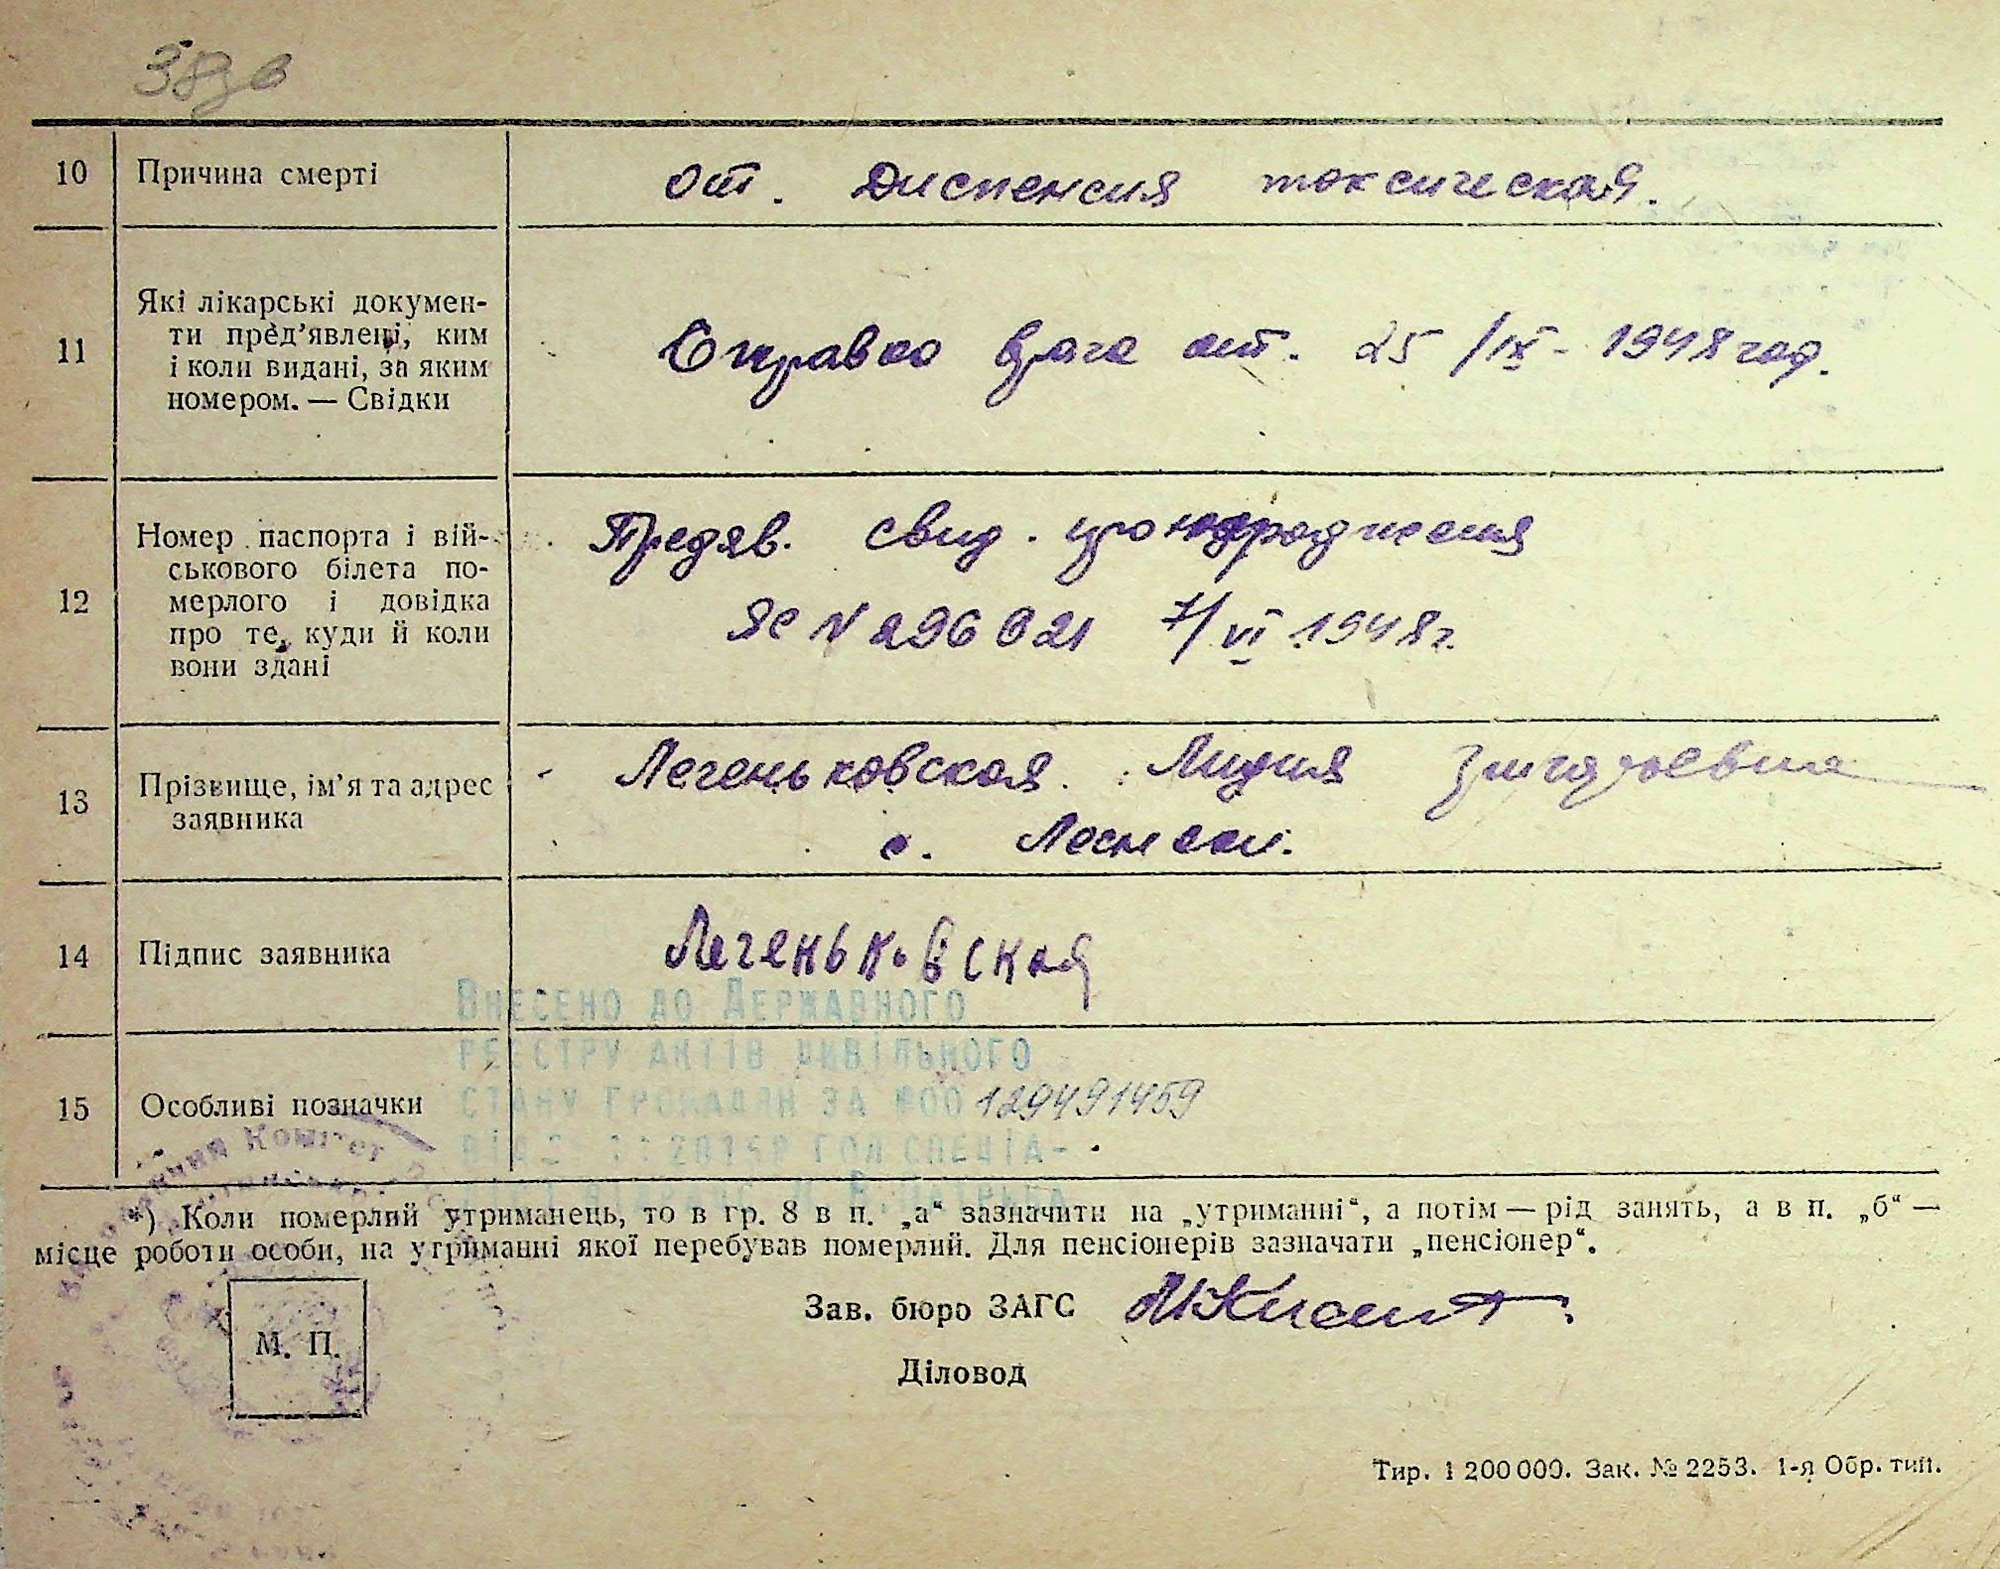 10 Причина смерті от. Диспенсия токсическая.
11 Які лікарські докумен-
ти пред'явлені, ким
і коли видані, за яким
номером. — Свідки
Справка врача от. 25/IX - 1948 год.
12 Номер паспорта і вій-
ськового білета по-
мерлого і довідка
про те, куди й коли
вони здані
Предяв. свид. рождения
ЯС № 296021 7/VI 1948 г.
13 Прізвище, ім'я та адрес
заявника
Легеньковская. Лидия
с.
14 Підпис заявника Легеньковская
Внесено до Державного
реєстру актів цивільного
стану громадян за №00 129491459
15 Особливі позначки
*) Коли померлий утриманець, то в гр. 8 в п. „а“ зазначити на „утриманні“, а потім — рід занять, а в п. „б“ —
місце роботи особи, на утриманні якої перебував померлий. Для пенсіонерів зазначати „пенсіонер“.
Зав. бюро ЗАГС
М. П.
Діловод
Тир. 1 200 000. Зак. № 2253. 1-я Обр. тип.